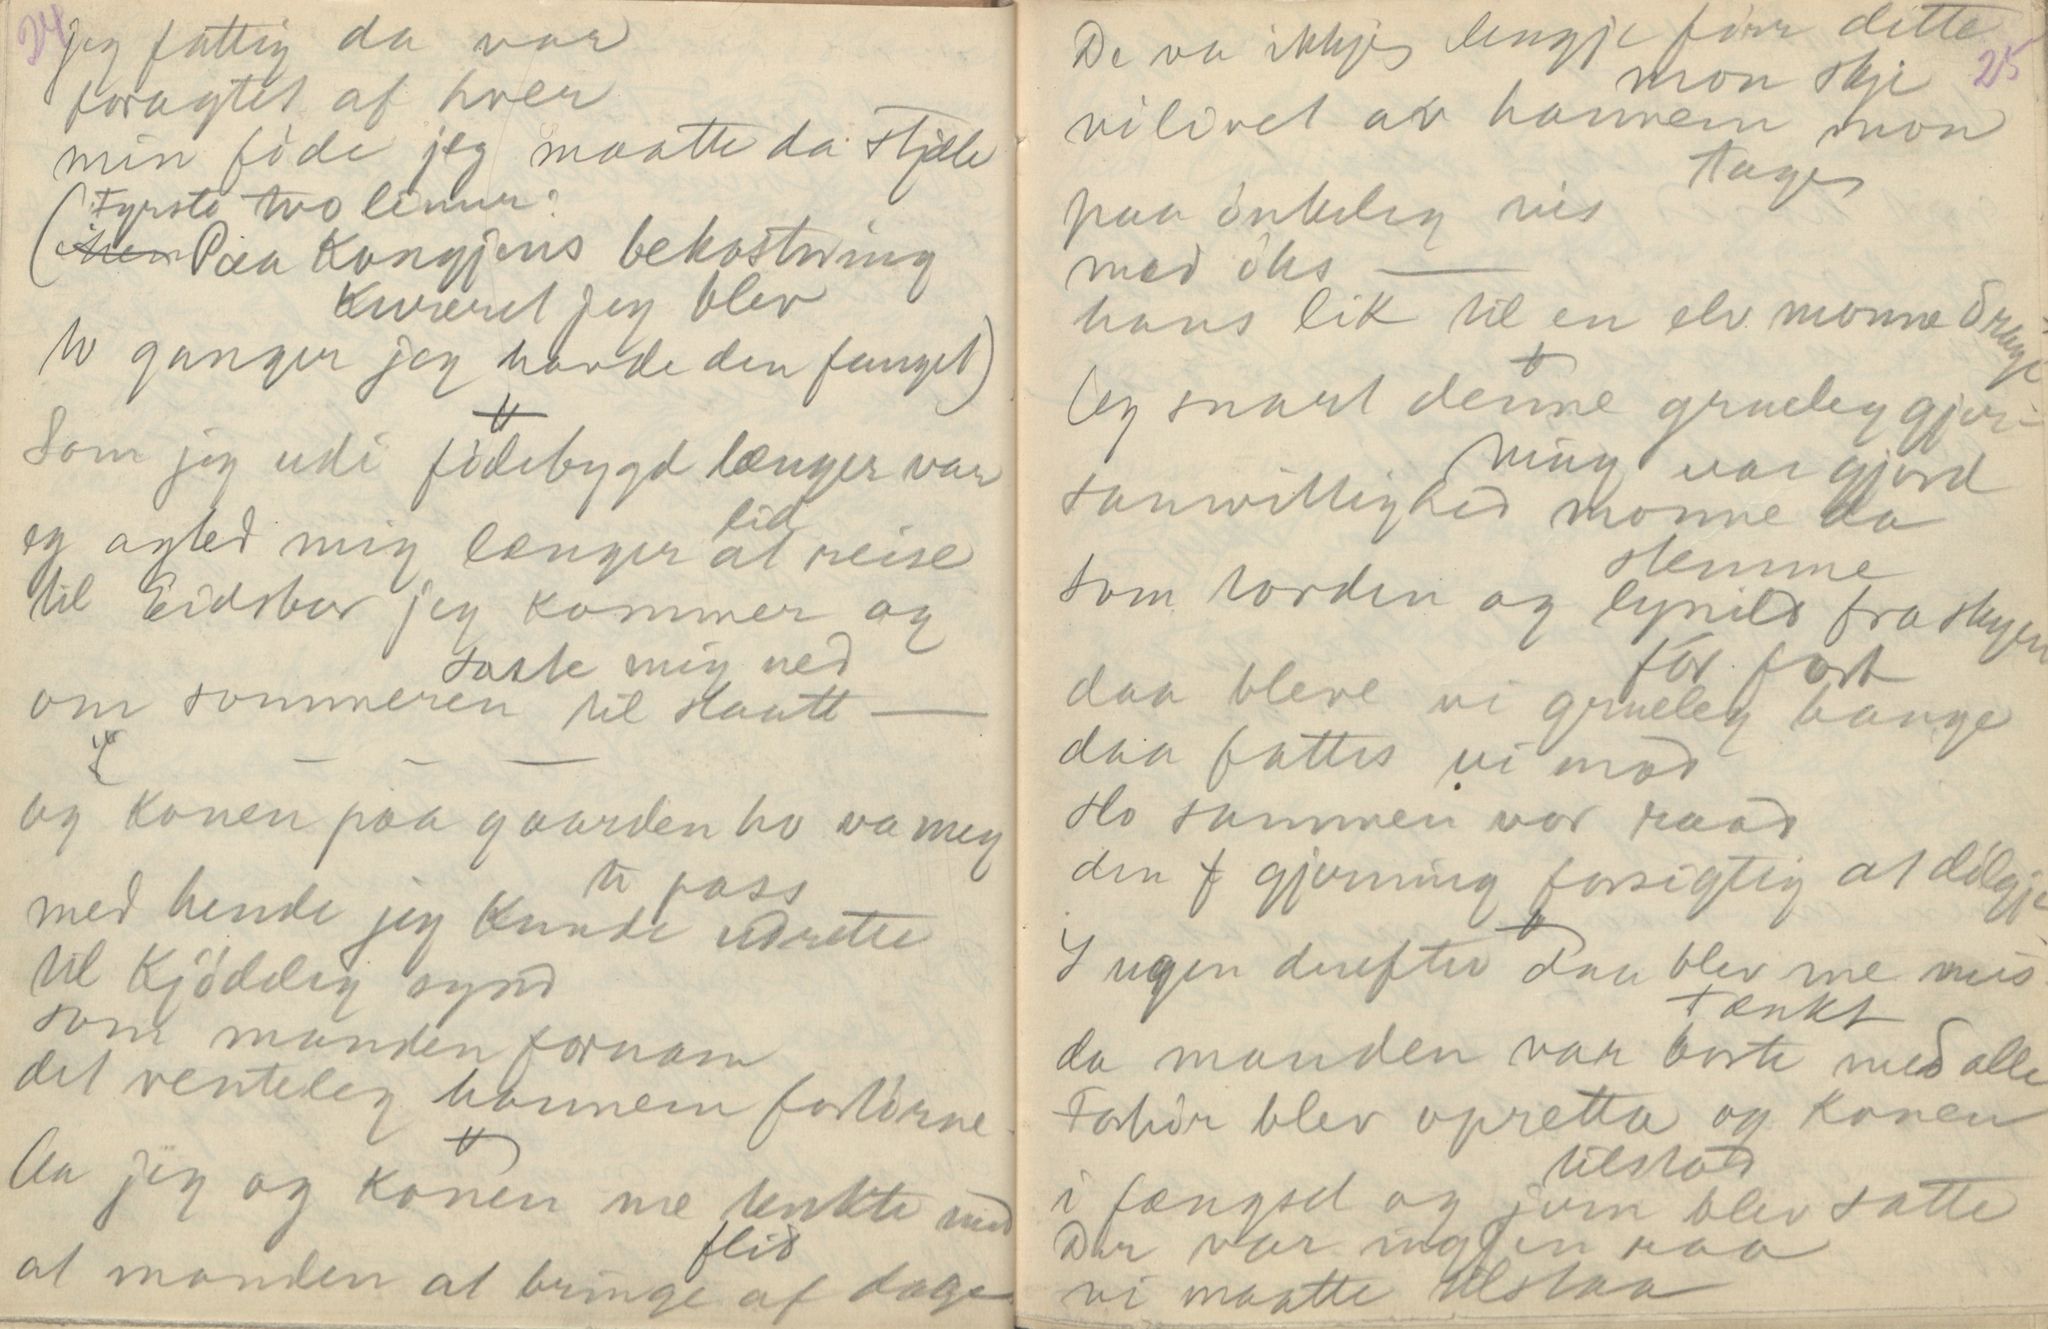 24
jeg fattig da var
foragtet af hver
min føde jeg maatte da stjæle
(Fyrste two linur:
Paa Kongjens bekostning
Kureret jeg blev
to ganger jeg havde den fanget)
Som jeg udi fødebygd længer var
og agted mig længer at reise
tid
til Eidsbor jeg kommer og
sætte mig ned
om sommeren til slaatt —
— — —
og konen paa gaarden ho va meg
te pass
med hende jeg kunde udrette
til kjødelig synd
som manden fornam
det ventelig hannem fortørne
Aa jeg og konen me tenkte med
flid
at manden at bringe af dage
25
De va ikkje lengje førr ditte
mon skje
vi livet av hannem mon
tage
paa ønkelig vis
med øks —
hans lik til en elv monne drage
Og snart denne gruelig gjer-
ning var gjord
samvittighed monne da
stemme
som torden og lynild fra skyen
før fort
daa bleve vi gruelig bange
daa fattes vi mod
slo sammen vor raad
den gjerning forsigtig at dølgje
I ugen derefter daa blev me mis-
tænkt
da manden var borte med alle
Forhør blev opretta og konen
tilstod
i fængsel og jern blev satte
Der var ingjen raa
vi maatte tilstaa